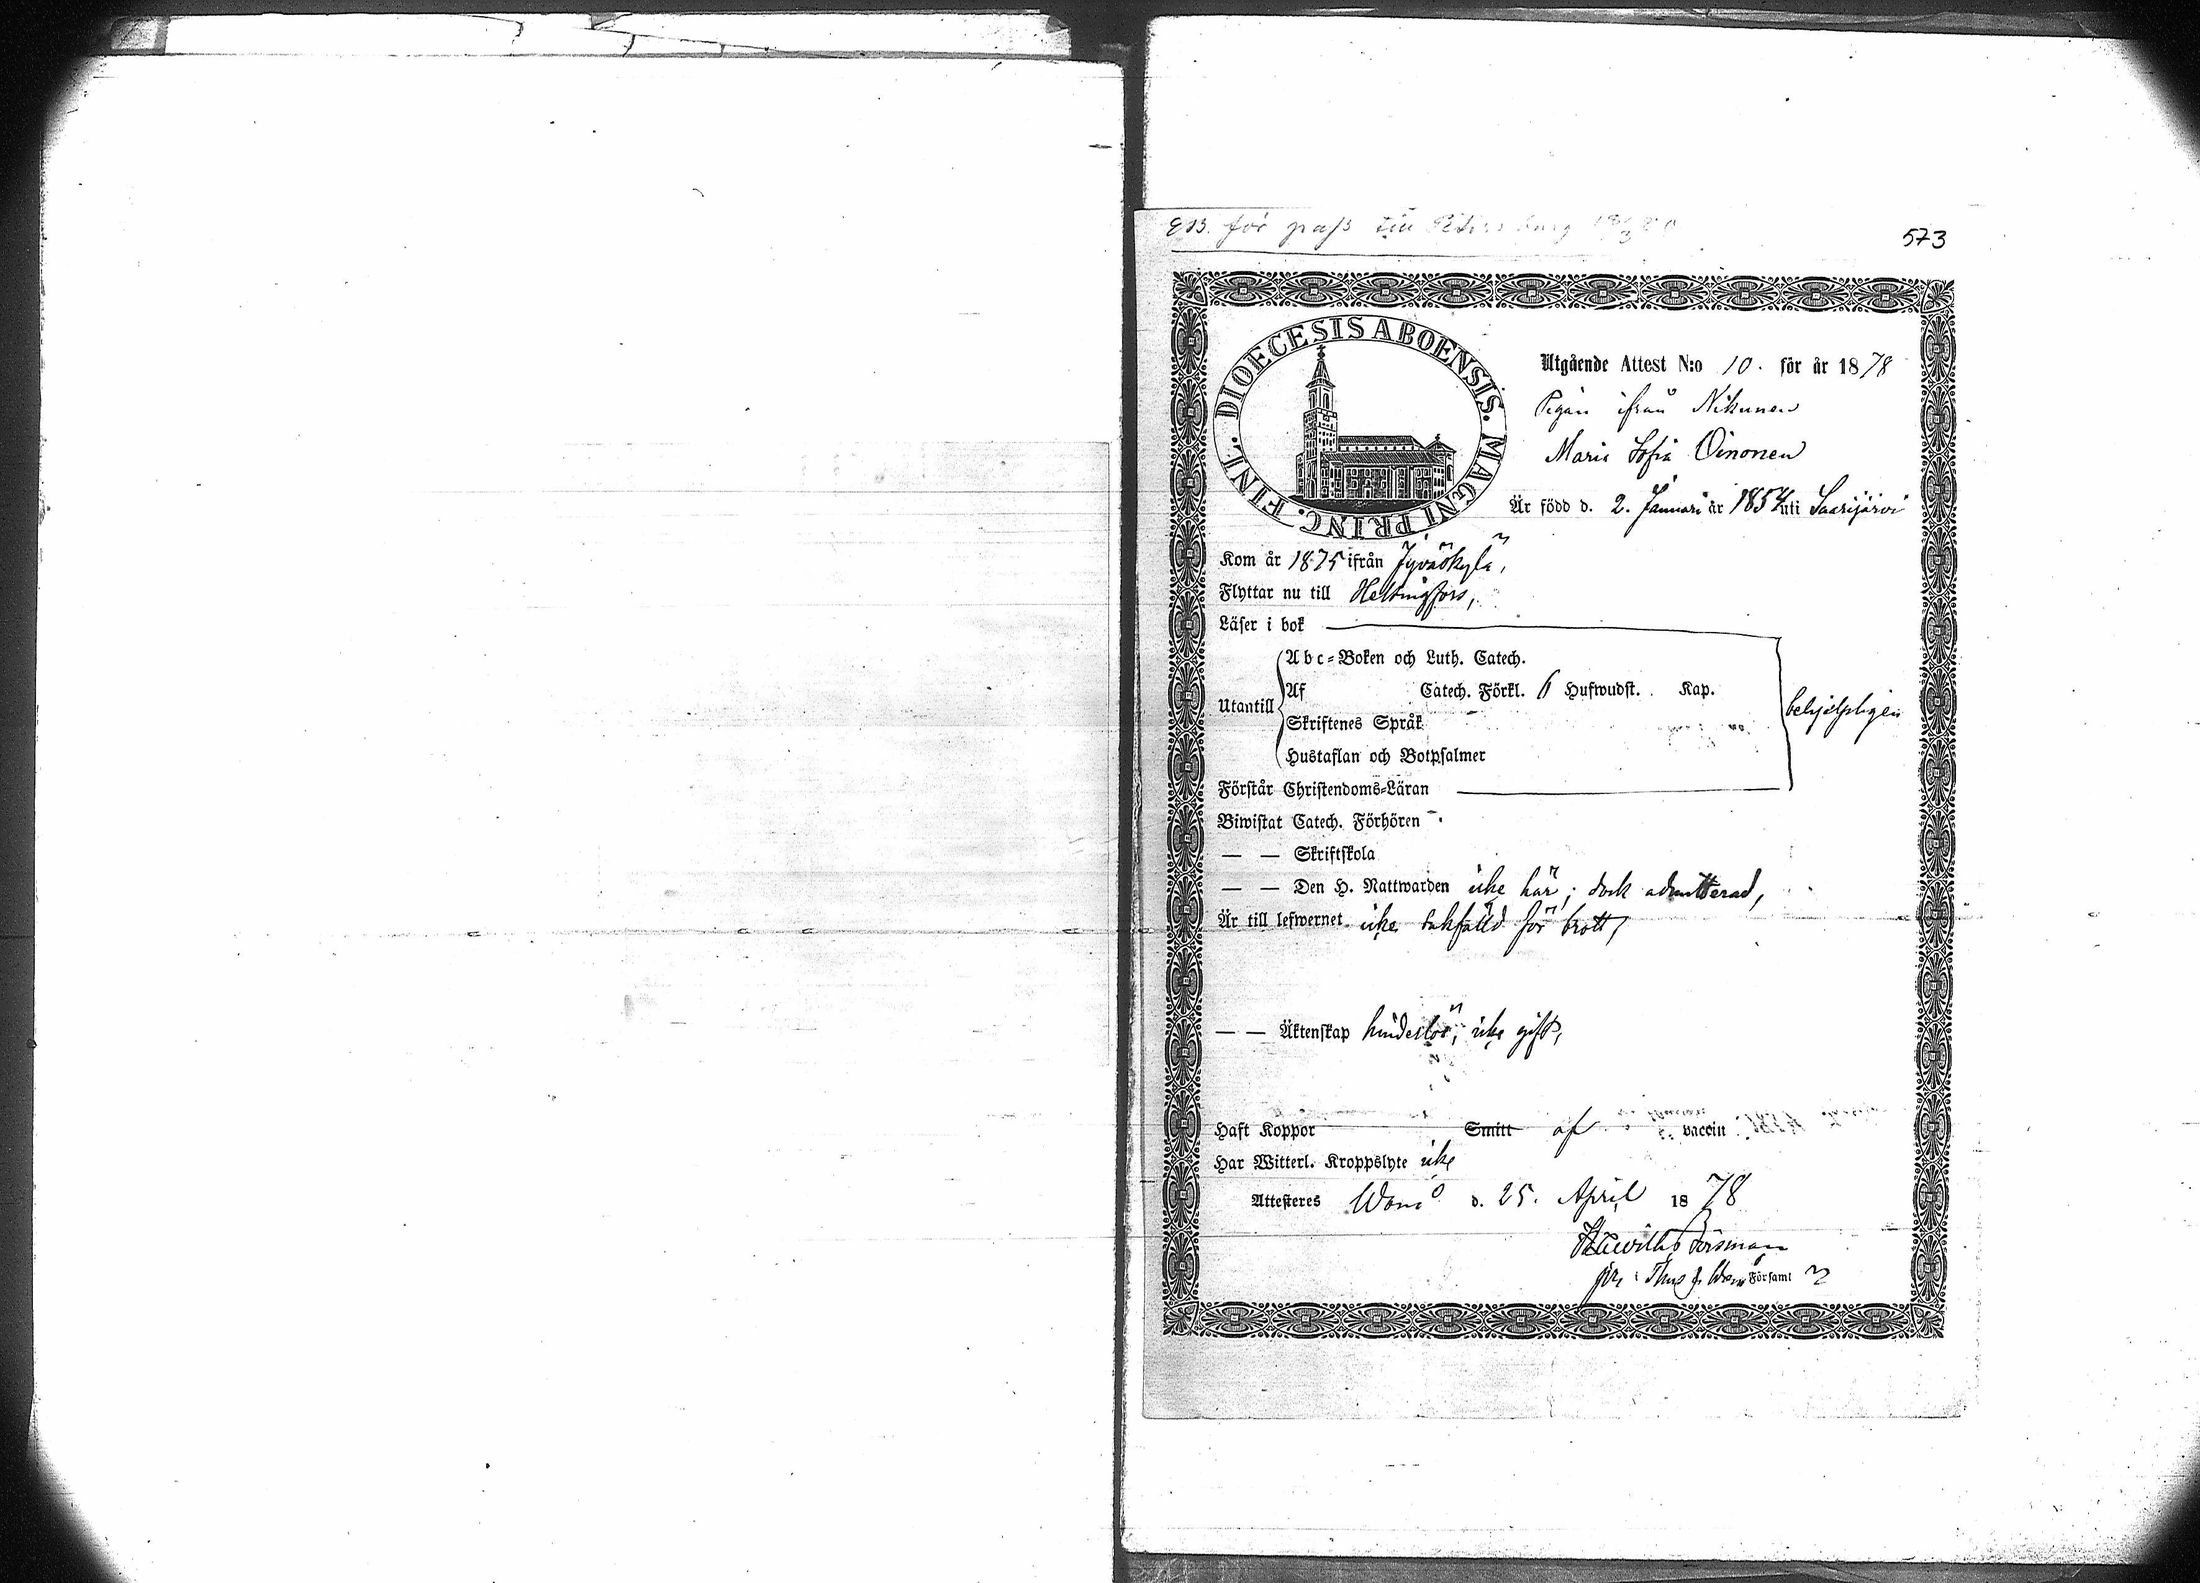 för pass till Petersburg
573
DIOECESIS ABOENSIS. MAGNI PRINC. FINL.
Utgående Attest N:o 10. för år 1878
Pigan ifrån Nikunen
Maria Sofia Oinonen
Är född d. 2. Januari år 1854 uti Saarijärvi
Kom år 1875 ifrån Jyväskylä,
Flyttar nu till Helsingfors,
Läser i bok
Utantill
Abc-Boken och Luth. Catech.
Af Catech. Förkl. 6 Hufwudst. Kap.
Skriftenes Språk
Hustaflan och Botpsalmer
behjelpligen
Förstår Christendoms-Läran
Biwistat Catech. Förhören -.
— — Skriftskola
— — Den H. Nattwarden icke här; dock admitterad,
Är till lefwernet icke sakfälld för brott,
— — Äktenskap hinderlös, icke gift,
Haft Koppor Smitt af vaccin
Har Witterl. Kroppslyte icke
Attesteres d. 25. April 1878
Församl